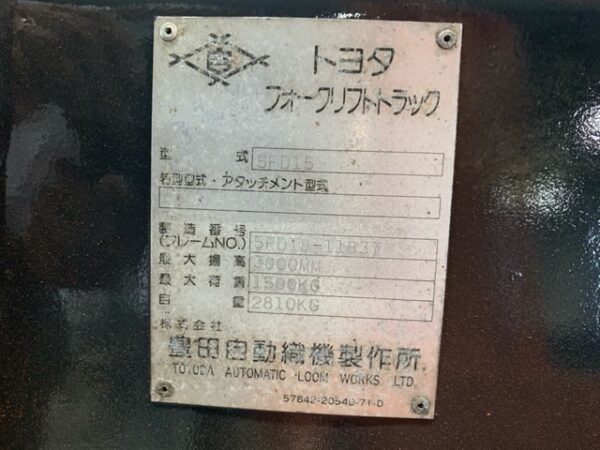 トヨタ
フォークリフトトラック
型式 5FD15
特型型式・アタッチメント型式
製造番号
(フレームNO.)
最大揚高 3000MM
最大荷重 1500KG
自重 2810KG
株式会社
豊田自動織機製作所
TOYODA AUTOMATIC LOOM WORKS, LTD.
57642-20540-71-D